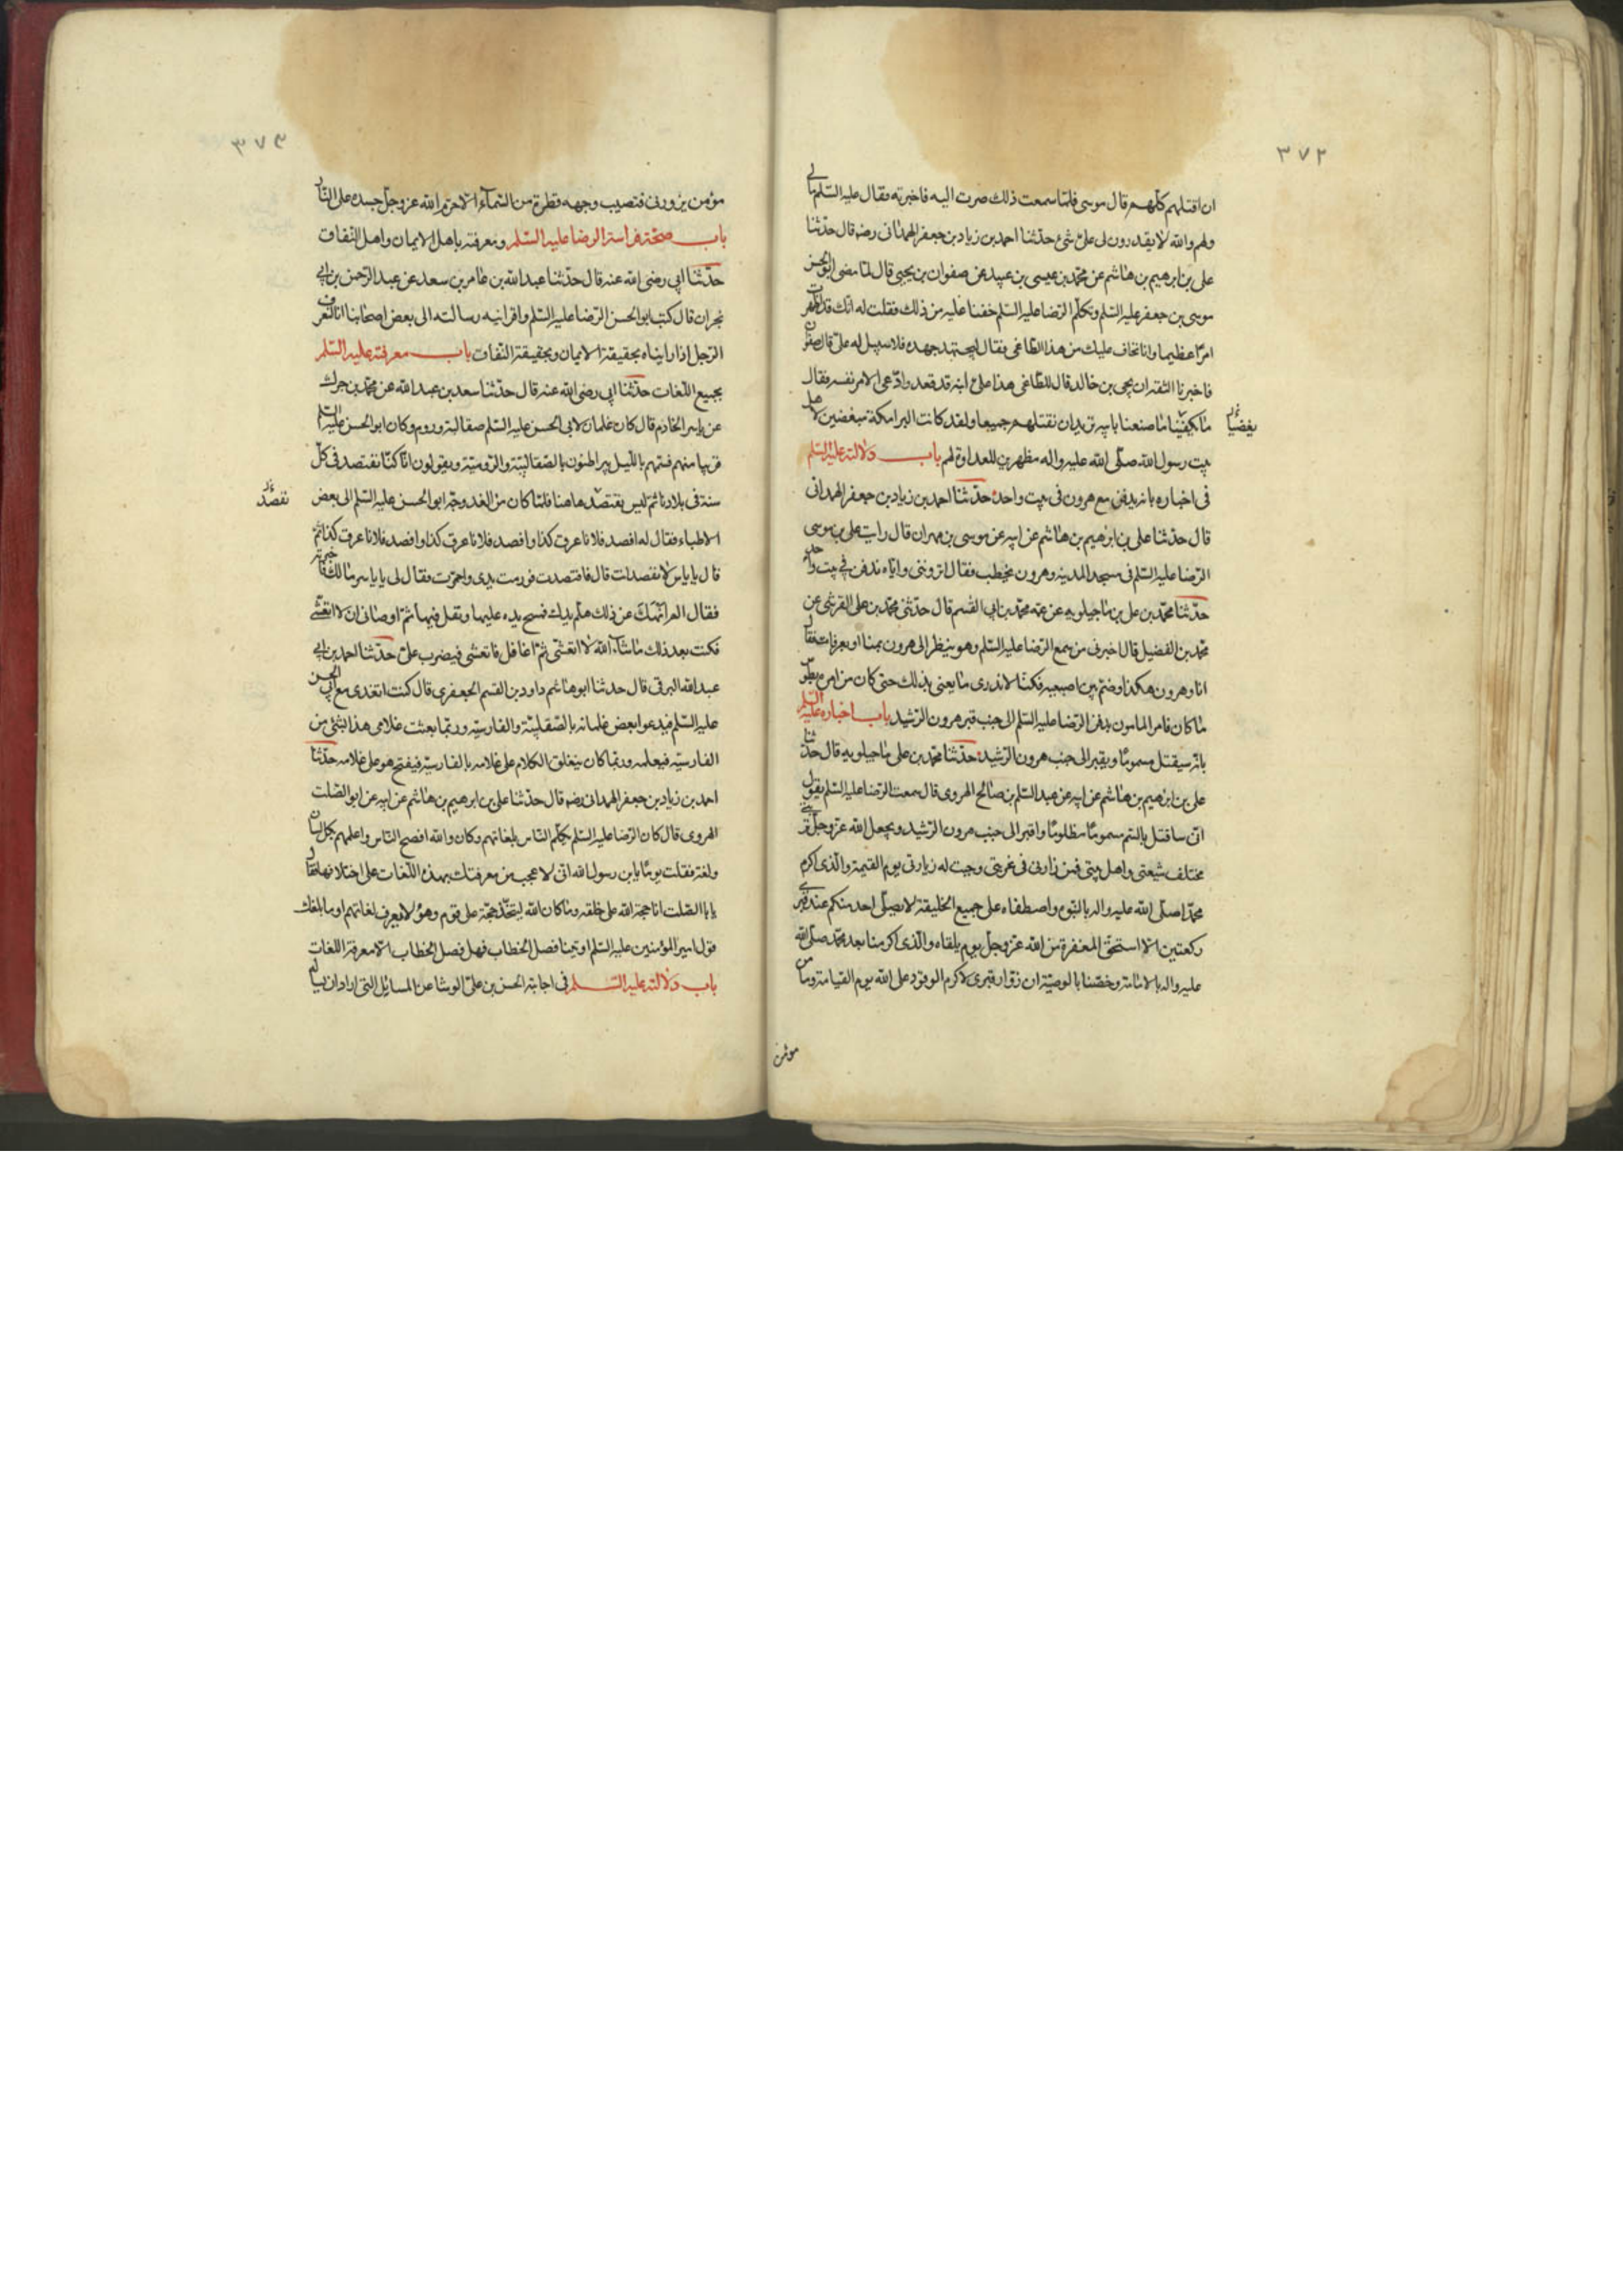 ٣٧٢
ان اقتلهم كلهم قال موسى فلما سمعت ذلك صرت اليه فاخبرته فقال عليه السلم مالى
ولهم والله لا يقدرون لى على شئ حدثنا احمد بن زياد بن جعفر الهمدانى رضه قال حدثنا
على بن ابرهيم بن هاشم عن محمد بن عيسى بن عبيد عن صفوان بن يحيى قال لما مضى ابو الحسن
موسى بن جعفر عليه السلم وتكلم الرضا عليه السلم خفنا عليه من ذلك فقلت له انك قد اظهرت
امرا عظيما وانا نخاف عليك من هذا الطاغى فقال ليجتهد جهده فلا سبيل له على قال صفوان
فاخبرنا الثقه ان يحيى بن خالد قال للطاغى هذا على ابنه قد قعد وادعى الامر لنفسه فقال
ما يكفينا ما صنعنا بابيه تريد ان نقتلهم جميعا ولقد كانت البرامكة مبغضين لاهل
بيت رسول الله صلى الله عليه واله مظهرين للعداوة لهم باب دلالته عليه السلم
فى اخباره بانه يدفن مع هرون فى بيت واحد حدثنا احمد بن زياد بن جعفر الهمدانى
قال حدثنا على بن ابرهيم بن هاشم عن ابيه عن موسى بن مهران قال رايت على بن موسى
الرضا عليه السلم فى مسجد المدينه وهرون يخطب فقال اتروننى واياه ندفن فى بيت واحد
حدثنا محمد بن على بن ماجيلويه عن عمه محمد بن ابى القسم قال حدثنى محمد بن على القرشى عن
محمد بن الفضيل قال اخبرنى من سمع الرضا عليه السلم وهو ينظر الى هرون بمنا او بعرفات فقال
انا وهرون هكذا وضم بين اصبعيه فكنا لا ندرى ما يعنى بذلك حتى كان من امره بطوس
ما كان فامر المامون بدفن الرضا عليه السلم الى جنب قبر هرون الرشيد باب اخباره عليه السلم
بانه سيقتل مسموما ويقبر الى جنب هرون الرشيد حدثنا محمد بن على ماجيلويه قال حدثنا
على بن ابرهيم بن هاشم عن ابيه عن عبد السلم بن صالح الهروى قال سمعت الرضا عليه السلم يقول
انى ساقتل بالسم مسموما مظلوما واقبر الى جنب هرون الرشيد ويجعل الله عز وجل تربتى
مختلف شيعتى واهل بيتى فمن زارنى فى غربتى وجبت له زيارتى يوم القيمة والذى اكرم
محمدا صلى الله عليه واله بالنبوة واصطفاه على جميع الخليقة لا يصلى احد منكم عند قبرى
ركعتين الا استحق المغفرة من الله عز وجل يوم يلقاه والذى اكرمنا بعد محمد صلى الله
عليه واله بالامامة وخصنا بالوصية ان زوار قبرى لاكرم الوفود على الله يوم القيامة وما من
مؤمن
٣٧٣
مؤمن يزورنى فتصيب وجهه قطرة من السماء الا حرم الله عز وجل جسده على النار
باب صحة فراسة الرضا عليه السلم ومعرفته باهل الايمان واهل النفاق
حدثنا ابى رضى الله عنه قال حدثنا عبد الله بن عامر بن سعد عن عبد الرحمن بن ابى
نجران قال كتب ابو الحسن الرضا عليه السلم واقرانيه رسالته الى بعض اصحابنا انا لنعرف
الرجل اذا رايناه بحقيقة الايمان وبحقيقة النفاق باب معرفته عليه السلم
بجميع اللغات حدثنا ابى رضى الله عنه قال حدثنا سعد بن عبد الله عن محمد بن جزك
عن ياسر الخادم قال كان غلمان لابى الحسن عليه السلم صقالبة وروم وكان ابو الحسن عليه السلم
قريبا منهم فسمعهم بالليل يراطنون بالصقالبية والرومية ويقولون انا كنا نفتصد فى كل
سنة فى بلادنا ثم ليس نفتصد هاهنا فلما كان من الغد وجه ابو الحسن عليه السلم الى بعض
الاطباء فقال له افصد فلانا عرق كذا وافصد فلانا عرق كذا وافصد فلانا عرق كذا ثم
قال يا ياسر لا تفصد انت قال فافتصدت فورمت يدى واحمرت فقال لى يا ياسر مالك فاخبرته
فقال الم انهك عن ذلك هلم يدك فمسح يده عليها وتفل فيها ثم اوصانى ان لا اتعشى
فكنت بعد ذلك ما شاء الله لا اتعشى ثم اغافل فاتعشى فيضرب على حدثنا احمد بن ابى
عبد الله البرقى قال حدثنا ابو هاشم داود بن القسم الجعفرى قال كنت اتغدى مع ابى الحسن
عليه السلم فيدعو بعض غلمانه بالصقلبية والفارسية وربما بعثت غلامى هذا بشئ من
الفارسية فيعلمه وربما كان ينغلق الكلام على غلامه بالفارسية فيفتح هو على غلامه حدثنا
احمد بن زياد بن جعفر الهمدانى رضه قال حدثنا على بن ابرهيم بن هاشم عن ابيه عن ابو الصلت
الهروى قال كان الرضا عليه السلم يكلم الناس بلغاتهم وكان والله افصح الناس واعلمهم بكل لسان
ولغة فقلت يوما يا بن رسول الله انى لاعجب من معرفتك بهذه اللغات على اختلافها فقال
يا با الصلت انا حجة الله على خلقه وما كان الله ليتخذ حجة على قوم وهو لا يعرف لغاتهم او ما بلغك
قول امير المؤمنين عليه السلم اوتينا فصل الخطاب فهل فصل الخطاب الا معرفة اللغات
باب دلالته عليه السلم فى اجابته الحسن بن على الوشا عن المسائل التى اراد ان يساله